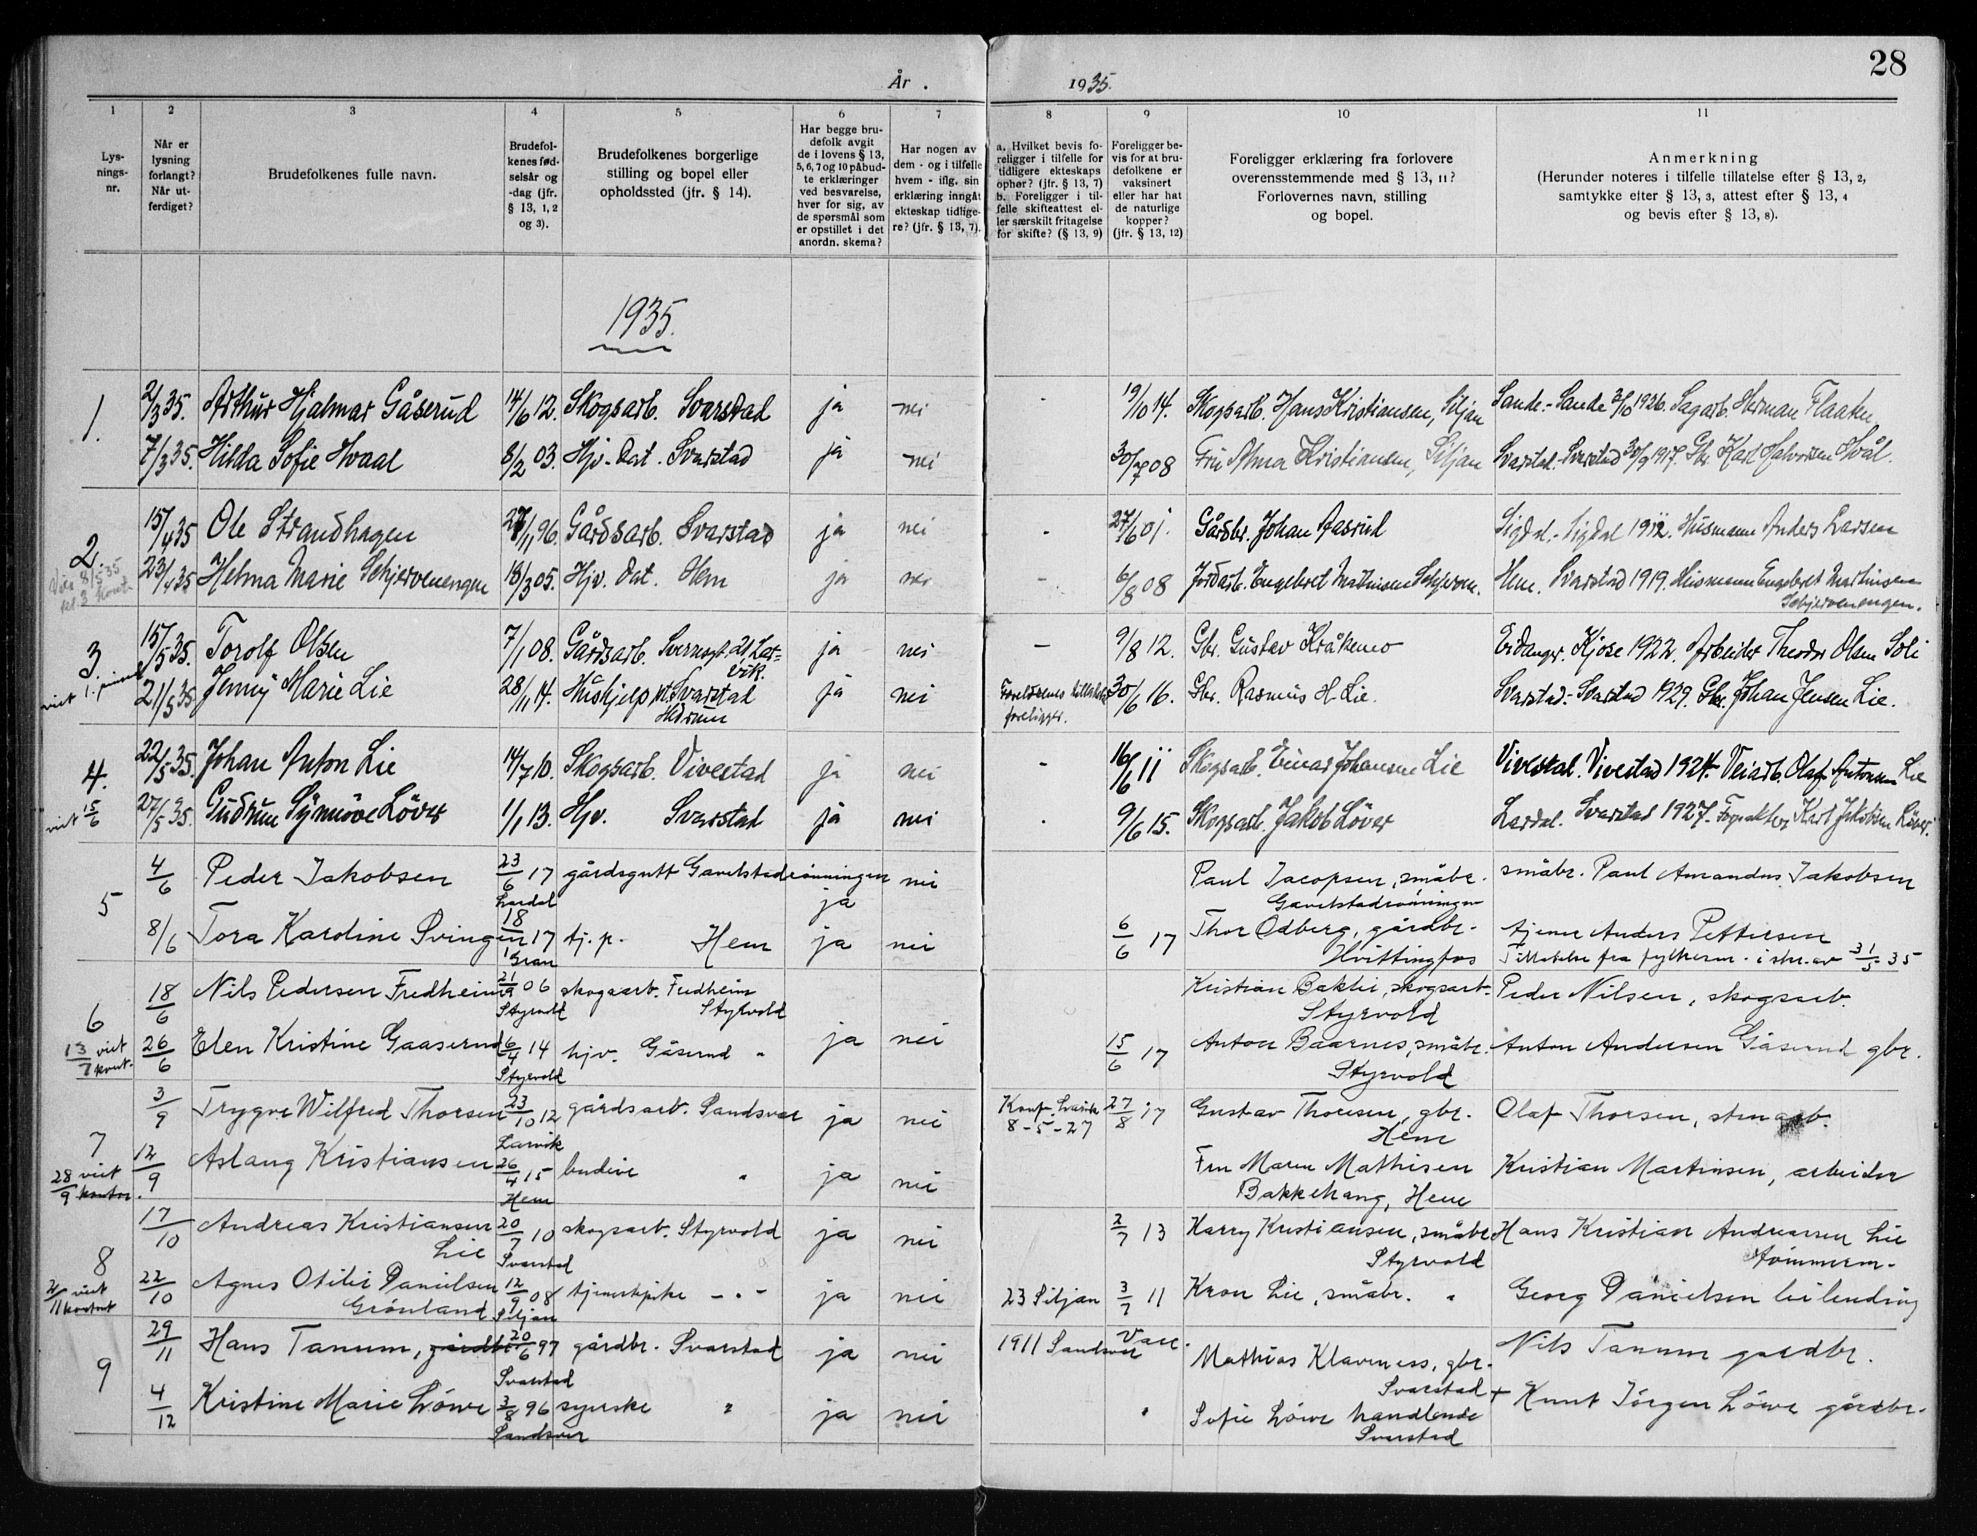 28
År . 1935.
1 2 3 4 5 6 7 8 9 10 11
Lys-
nings-
nr.
Når er
lysning
forlangt?
Når ut-
ferdiget?
Brudefolkenes fulle navn.
Brudefol-
kenes fød-
selsår og
-dag (jfr.
§ 13, 1, 2
og 3).
Brudefolkenes borgerlige
stilling og bopel eller
opholdssted (jfr. § 14).
Har begge bru-
defolk avgit
de i lovens § 13,
5, 6, 7 og 10 påbud-
te erklæringer
ved besvarelse,
hver for sig, av
de spørsmål som
er opstillet i det
anordn. skema?
Har nogen av
dem - og i tilfelle
hvem - iflg. sin
erklæring inngåt
ekteskap tidlige-
re? (jfr. § 13, 7).
a. Hvilket bevis fo-
religger i tilfelle for
tidligere ekteskaps
ophør? (jfr. § 13, 7)
b. Foreligger i til-
felle skifteattest el-
ler særskilt fritagelse
for skifte? (§ 13, 9)
Foreligger be-
vis for at bru-
defolkene er
vaksinert
eller har hat
de naturlige
kopper?
(jfr. § 13, 12)
Foreligger erklæring fra forlovere
overensstemmende med § 13, 11?
Forlovernes navn, stilling
og bopel.
Anmerkning
(Herunder noteres i tilfelle tillatelse efter § 13, 2,
samtykke efter § 13, 3, attest efter § 13, 4
og bevis efter § 13, 8).
1935.
1. 2/3 35. Arthur Hjalmar Gåserud 14/6 12. Skogsarb. Svarstad ja nei - 19/10 14. Skogsarb. Hans Kristiansen, Siljan Sande.- Sande 3/10 1926. Sagarb. Herman Flaaten
7/3 35. Hilda Sofie Hvaal 8/2 03. Hjv. Dat. Svarstad ja nei 30/7 08 Fru Alma Kristiansen, Siljan Svarstad.- Svarstad 30/9 1917. Gbr. Karl Halvorsen Hvål.
2. 15/4 35 Ole Strandhagen 27/11 96. Gårdsarb. Svarstad ja nei - 27/6 01. Gårdbr. Johan Aasrud Sigdal.- Sigdal 1912. Husmann Anders Larsen
23/4 35 Helma Marie Schjervenengen 18/3 05. Hjv. Dat. Hem ja nei - 6/8 08 Jordarb. Engebret Mathisen Schjerven. Hem. Svarstad 1919. Husmann Engebret Martinsen
Schjervenengen.
3. 15/5 35. Torolf Olsen 7/1 08. Gårdsarb. ja nei - 9/8 12. Gbr. Gustav Kråkemo Eidanger. Kjose 1922. Arbeider Theodor Olsen Soli
21/5 35 Jenny Marie Lie 28/1 14. Hushjelp Svarstad ja nei Foreldrenes tillatelse 30/6 16. Gbr. Rasmus H. Lie. Svarstad.- Svarstad 1929. Gbr. Johan Jensen Lie.
Hedrum foreligger.
4. 22/5 35. Johan Anton Lie 14/7 10. Skogsarb. Vivestad ja nei - 16/6 11 Skogsarb. Einar Johansen Lie Vivestad. Vivestad 1924. Veiarb. Olaf Antonsen Lie
viet 15/6 27/5 35. Gudrun Synnöve Löver 1/1 13. Hjv. Svarstad ja nei . 9/6 15. Skogsarb. Jakob Löver Lardal. Svarstad 1927. Karl Jakobsen Löver.
5 4/6 Peder Jakobsen 23/6 17 gårdsgutt Gavelstadrönningen nei Paul Jacopsen, småbr. småbr. Paul Amandus Jakobsen
Lardal ja Gavelstadrönningen
8/6 Tora Karoline Svingen 18/1 17 tj.p. Hem ja nei 6/6 17 Thor Odberg, gårdbr. tjener Anders Pettersen
Gran Hvittingfos Tillatelse fra fylkesm. i skr. av 31/5 35
6 18/6 Nils Pedersen Fredheim 21/9 06 skogsarb. Fredheim Kristian Bakke, skogsarb. Peder Nilsen, skogsarb.
Styrvold Styrvold Styrvold
13/7 viet kont. 26/6 Elen Kristine Gaaserud 16/4 14 hjv. Gåserud " ja nei 15/6 17 Anton Baarnes, småbr. Anton Andersen Gåserud gbr.
Styrvold Styrvold
7 3/9 Trygve Wilfred Thorsen 23/10 12 gårdsarb. Sandsvær ja nei Konf. Larvik 27/8 17 Gustav Thoresen, gbr. Olaf Thorsen, stenarb.
Larvik 8-5-27 Hem
28/9 viet kontor. 12/9 Aslaug Kristiansen 26/4 15 budeie " ja nei Fru Maren Mathisen Kristian Martinsen, arbeider
Hem Bakkehaug, Hem
8 17/10 Andreas Kristiansen 20/7 10 skogsarb. Styrvold ja nei 2/7 13 Harry Kristiansen, småbr. Hans Kristian Andreassen Lie
Lie Svarstad Styrvold tömmerm.
2/11 viet kontoret 22/10 Agnes Otilie Danielsen 12/9 08 tjenestepike - " - ja nei 23 Siljan 3/7 11 Kron Lie, småbr. " Georg Danielsen leilending
Grönland Siljan
9 29/11 Hans Tanum, gårdbr. 20/6 97 gårdbr. Svarstad ja nei 1911 Sandsvær Vacc. Mathias Klaveness, gbr. Nils Tanum gardbr.
Svarstad Svarstad
4/12 Kristine Marie Löwe 3/8 96 syerske " ja nei " Sofie Löwe handlende + Knut Jörgen Löwe gårdbr.
Sandsvær Svarstad